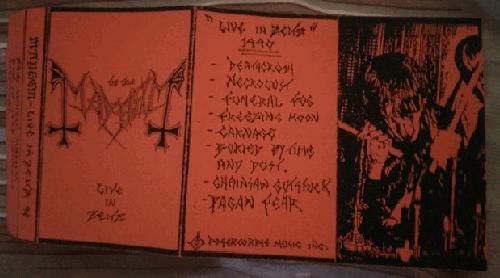 MAYHEM
LIVE
IN
ZEITZ
"LIVE IN ZEITZ"
1990
- DEATHCRUSH
- NECROLUST
- FUNERAL FOG
- FREEZING MOON
- CARNAGE
- BURIED BY TIME
AND DUST.
- CHAINSAW GUTSFUCK
- PAGAN FEAR
MUSIC INC.